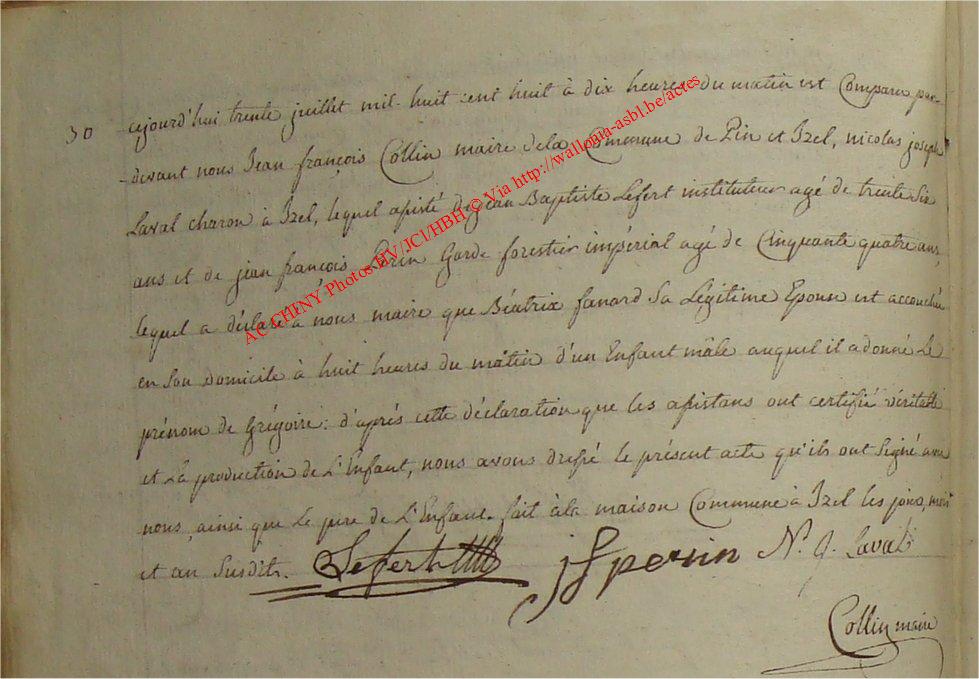 30
cejourd'hui trente juillet mil-huit cent huit à dix heures du matin est Comparu par-
devant nous Jean françois Collin maire dela Commune de Pin et Izel, nicolas joseph
Laval charon à Izel, lequel assisté de jean Baptiste Lefert instituteur agé de trente Six
ans et de jean françois Perin Garde forestier impérial agé de Cinquante quatre ans,
lequel a déclaré à nous maire que Béatrix fanard Sa Légitime Epouse est accouchée
en Son domicile à huit heures du matin d'un Enfant mâle auquel il a donné Le
prénom de Grégoire: d'après cette déclaration que les assistans ont certifié véritable
et La production de L'Enfant, nous avons dressé le présent acte qu'ils ont Signé avec
nous, ainsi que Le pere de L'Enfant. fait àla maison Commune à Izel les jour, mois
et an Susdits. Lefert jf perin N. J. Laval
Collin maire
AC CHINY Photos HV/JCl/HBH © Via http://wallonia-asbl.be/actes